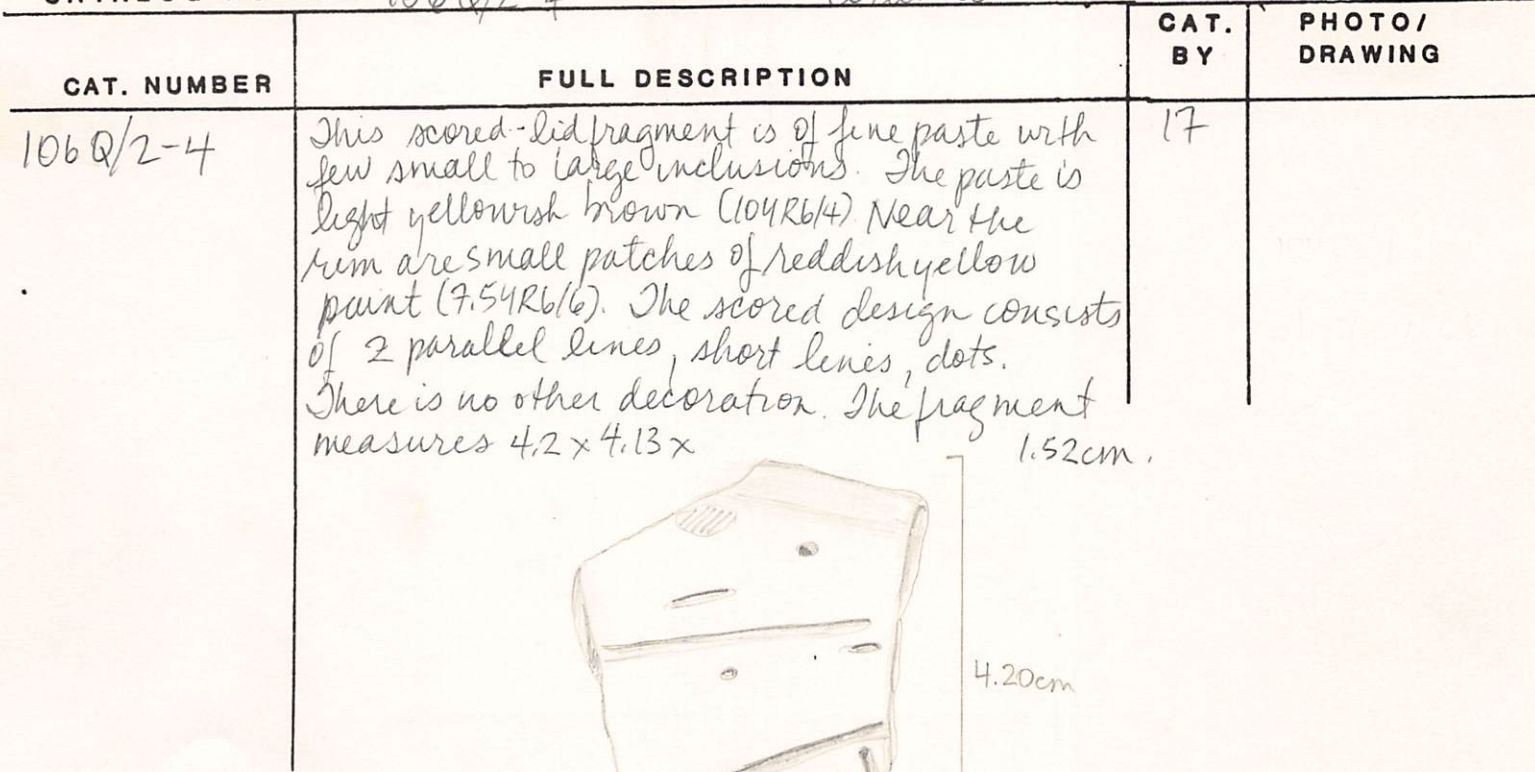 106Q/2-4
CAT. NUMBER FULL DESCRIPTION CAT. BY PHOTO/ DRAWING
106Q/2-4 This scored-lid fragment is of fine paste with 17
few small to large inclusions. The paste is
light yellowish brown (10YR6/4). Near the
rim are small patches of reddish yellow
paint (7.5YR6/6). The scored design consists
of 2 parallel lines, short lines, dots.
There is no other decoration. The fragment
measures 4.2 x 4.13 x 1.52cm.
4.20cm